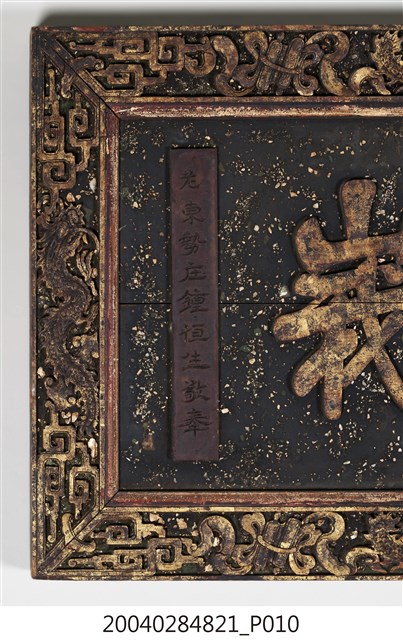 老東勢庄鐘恒生敬奉
20040284821_P010